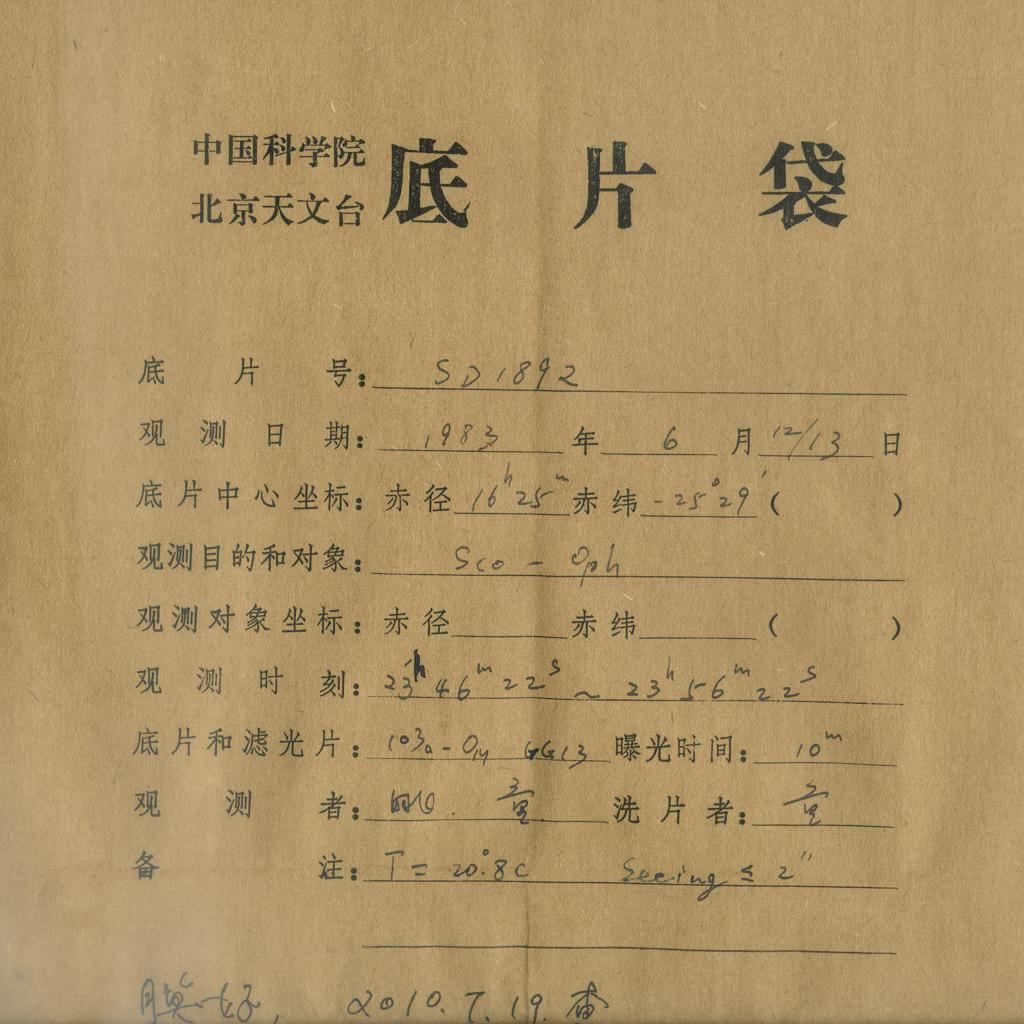 中国科学院
北京天文台
底片袋
底片号: SD1892
观测日期: 1983 年 6 月 12/13 日
底片中心坐标: 赤径 16h25m 赤纬 -25°29′ ( )
观测目的和对象: Sco - Oph
观测对象坐标: 赤径 赤纬 ( )
观测时刻: 23h46m22s ~ 23h56m22s
底片和滤光片: 103a-O GG13 曝光时间: 10m
观测者: 洗片者:
备注: T = 20°.8C Seeing ≤ 2″
膜好, 2010.7.19. 查